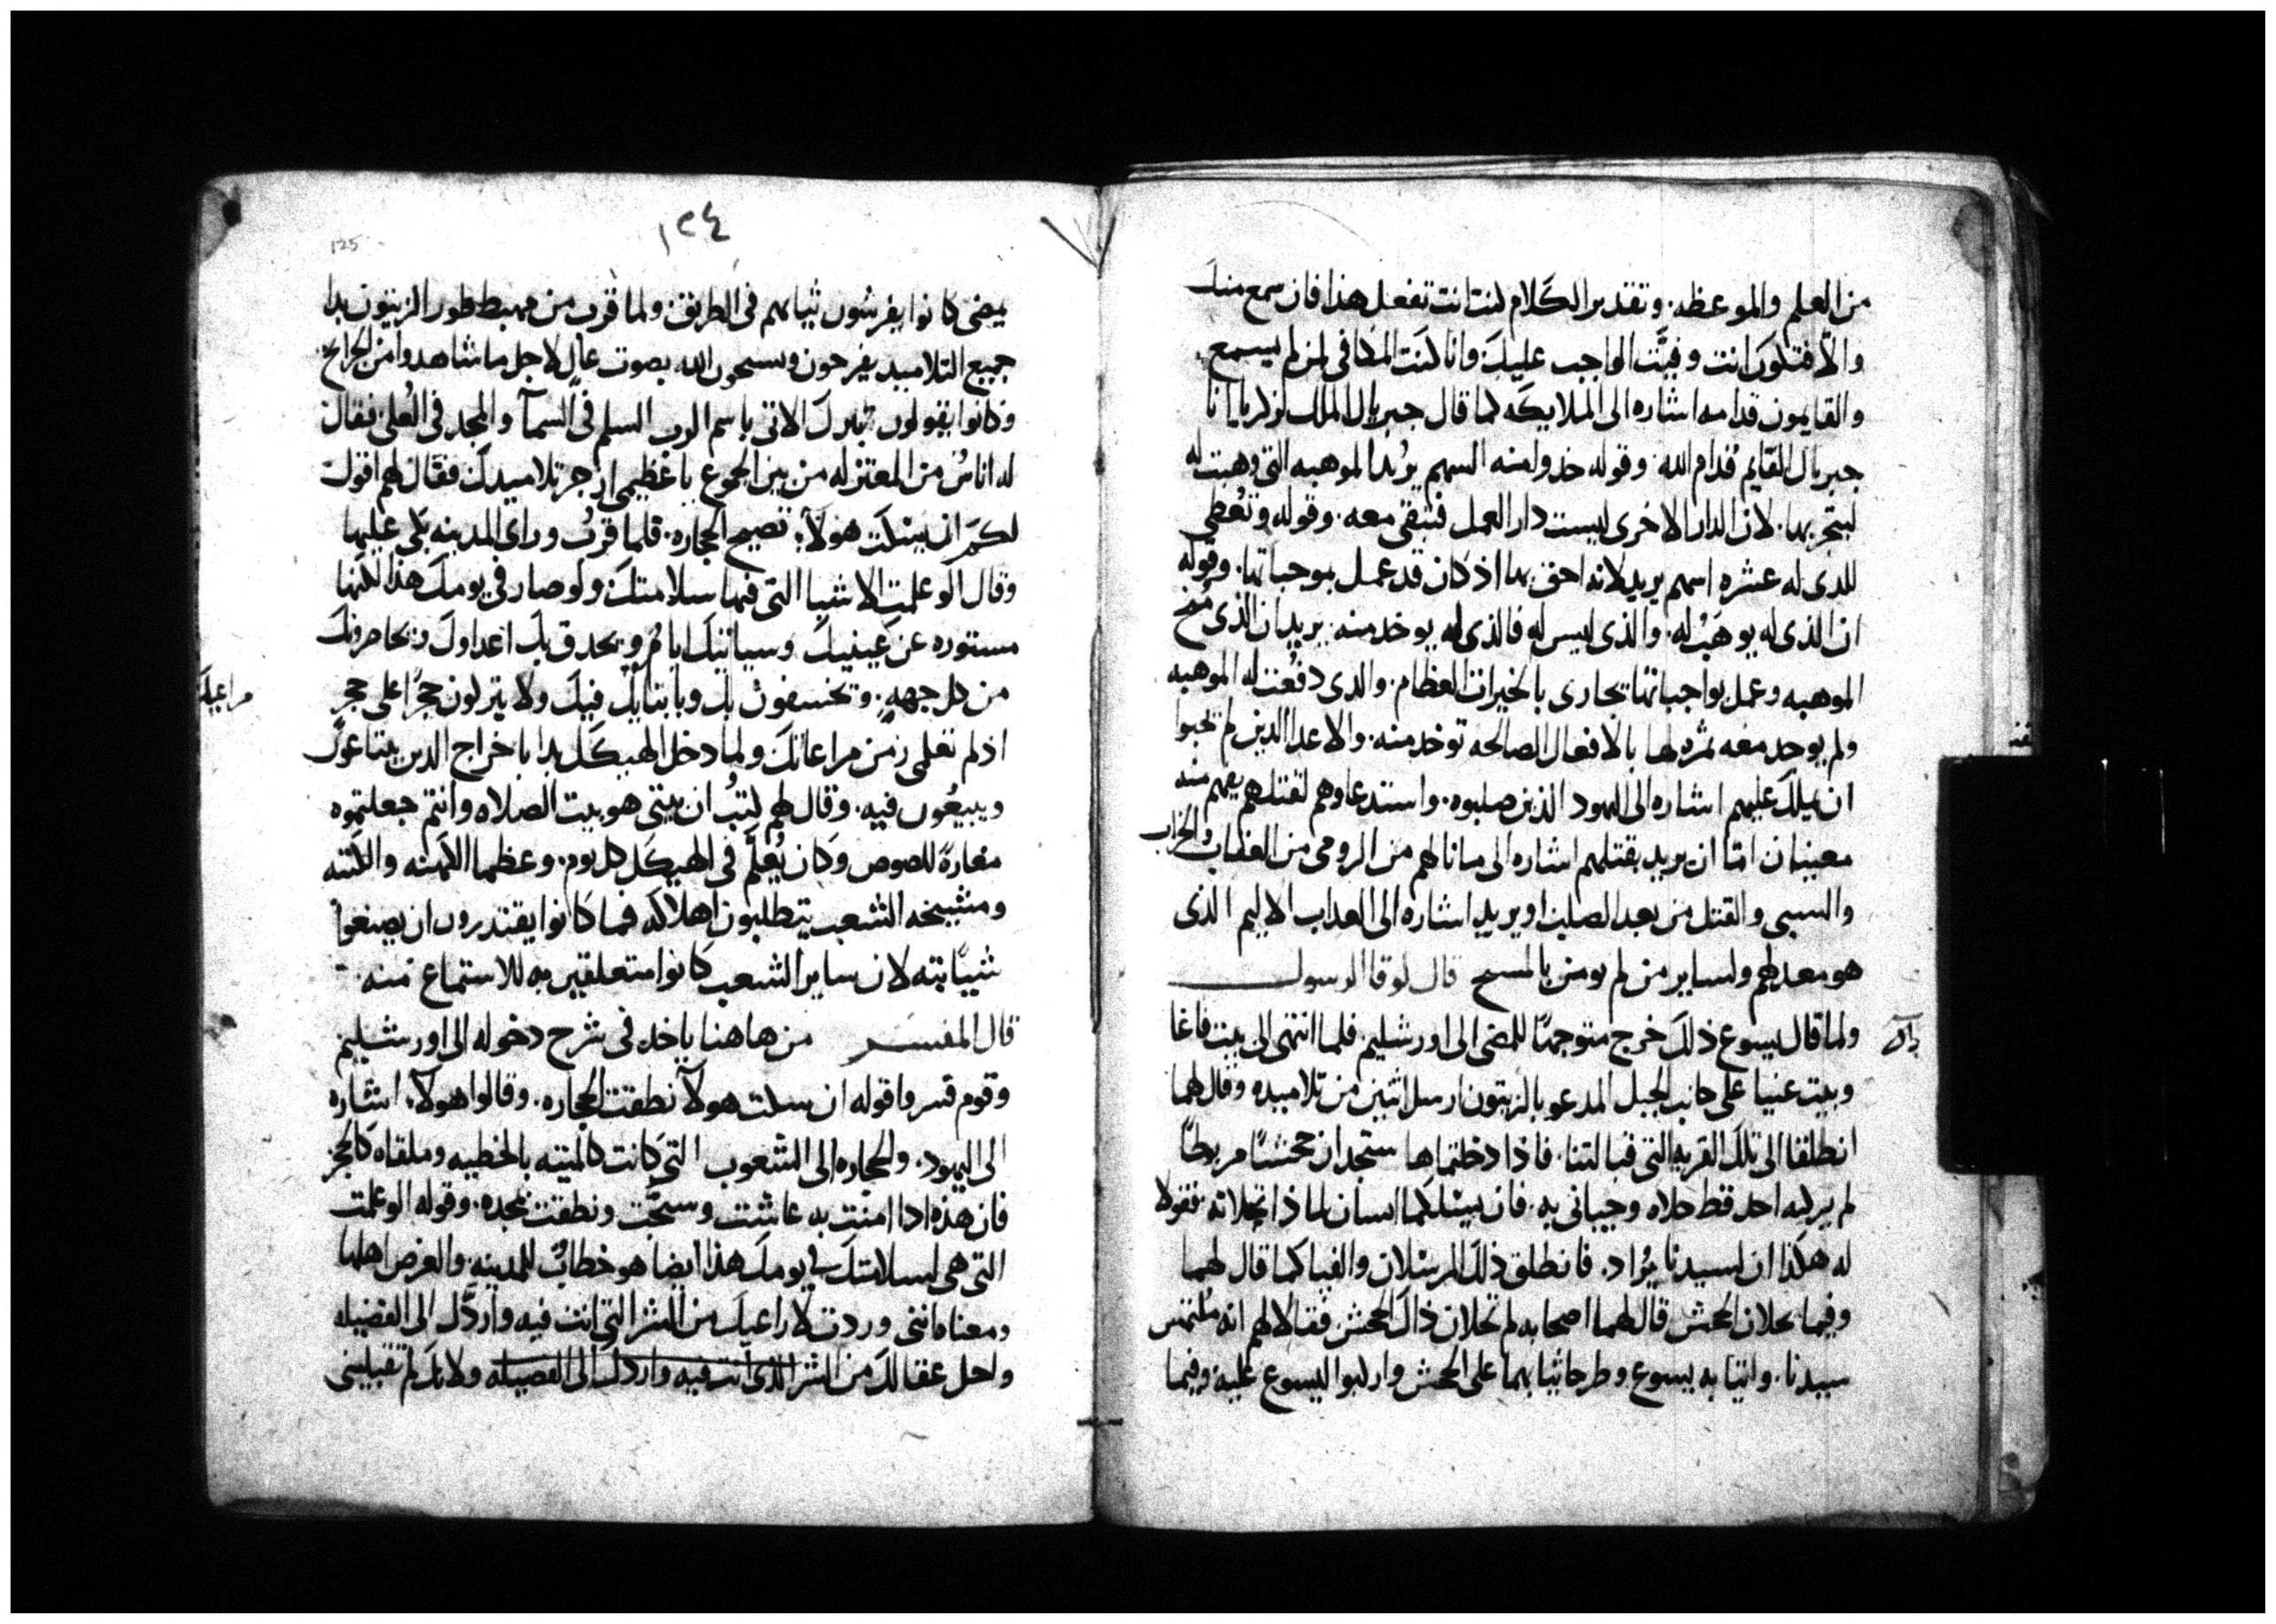 من العلم والموعظه. وتقدير الكلام كنت انت تفعل هذا فان سمع منك
والا فتكون انت وفيت الواجب عليك وانا كنت المكافى لمن لم يسمع.
والقايمون قدامه اشاره الى الملايكه كما قال جبريال الملك لزكريا انا
جبريال القايم قدام الله. وقوله خدوا منه السهم يريد الموهبه التى وهبت له
ليتجر بها. لان الدار الاخرى ليست دار العمل فتبقى معه. وقوله وتعطى
للدى له عشره اسهم يريد لانه احق بها اذ كان قد عمل بموجباتها. وقوله
ان الذى له يوهب له. والذى ليس له فالذى له يوخد منه. يريد ان الذى منح
الموهبه وعمل بواجباتها تجارى بالخيرات العظام. والدى دفعت له الموهبه
ولم يوجد معه ثمره لها بالافعال الصالحه توخد منه. والاعدا الدين لم يحبوا
ان يملك عليهم اشاره الى اليهود الذين صلبوه. واستدعاوهم لقتلهم يفهم منه
معنيان اما ان يريد بقتلهم اشاره الى ما نالهم من الرومى من العذاب والخراب
والسبى والقتل من بعد الصلب او يريد اشاره الى العداب الاليم الذى
هو معد لهم ولساير من لم يومن بالمسيح قال لوقا الرسول
ولما قال يسوع ذلك خرج متوجهًا للمضى الى اورشليم فلما انتهى الى بيت فاغا
وبيت عنيا على جانب الجبل المدعو بالزيتون ارسل اثنين من تلاميده وقال لهما
انطلقا الى تلك القريه التى قبالتنا. فاذا دخلتماها ستجدان جحشًا مربوطًا
لم يركبه احد قط حلاه وجيبانى به. فان يسلكما انسان لماذا تحلانه فقولا
له هكذا ان لسيدنا يُراد. فانطلق ذلك المرسلان والفيا كما قال لهما
وفيما يحلان الجحش قال لهما اصحابه لم تحلان ذاك الجحش فقالا لهم انه ملتمس
سيدنا. واتيا به يسوع وطرحا ثيابهما على الجحش واركبوا ليسوع عليه وفيما
١٢٤
125
يمضى كانوا يفرشون ثيابهم فى الطريق. ولما قرب من مهبط طور الزيتون بدا
جميع التلاميد يفرحون ويسبحون الله بصوت عالٍ لاجل ما شاهدوا من الجرايح
وكانوا يقولون تبرك الاتى باسم الرب السلم فى السمآ والمجد فى العُلى فقال
له اناسٌ من المعتزله من بين الجموع يا عظيمى ازجر تلاميدك فقال لهم اقول
لكم ان سكت هولآء تصيح الحجاره. فلما قرب وراى المدينه بكى عليها
وقال لو علمت الاشيا التى فيها سلامتك ولو صار فى يومك هذا لكنها
مستوره عن عينيك وسياتيك ايامٌ ويحدق بك اعداوك ويحاصرونك
من كل جهه. وتخسفون بك وبابنايك فيك ولا يتركون حجرًا على حجرٍ
اذ لم تعلمى زمن مراعاتك ولما دخل الهيكل بدا باخراج الدين يبتاعون
ويبيعُون فيه. وقال لهم كتبُ ان بيتى هو بيت الصلاه وانتم جعلتموه
مغارة للصوص وكان يُعلّم فى الهيكل كل يوم. وعظما الكهنه والكتبه
ومشيخه الشعب يتطلبون اهلاكه فما كانوا يقتدرون ان يصنعوا
شيًا بته لان ساير الشعب كانوا متعلقين به للاستماع منه
قال المفسر من هاهنا ياخد فى شرح دخوله الى اورشليم
وقوم فسروا قوله ان سكت هولآ نطقت الحجاره. وقالوا هولآء اشاره
الى اليهود. والحجاره الى الشعوب التى كانت كالميته بالخطيه وملقاه كالحجر
فان هذه ادا امنت به عاشت وسبّحت ونطقت بمجده. وقوله لو علمت
التى هى لسلامتك فى يومك هذا ايضا هو خطابٌ للمدينه والغرض اهلها
ومعناه اننى وردت لاراعيك من الشر التى انت فيه واردّك الى الفضيله
واحل عقالك من الشر الذى انت فيه واردك الى الفضيله ولانك لم تقبلينى